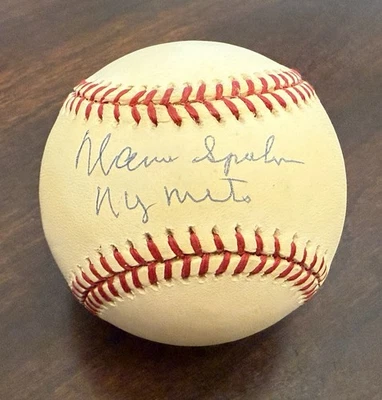 Warren Spahn
NY Mets